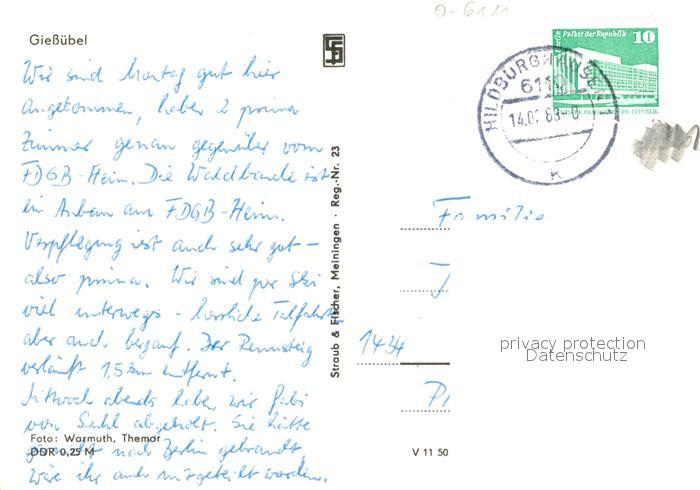 Gießübel
Wir sind Montag gut hier
angekommen, haben 2 prima
Zimmer genau gegenüber vom
FDGB-Heim. Die Waldbaude ist
ein Anbau am FDGB-Heim.
Verpflegung ist auch sehr gut –
also prima. Wir sind per Ski
viel unterwegs – herrliche Talfahrten
aber auch bergauf. Der Rennsteig
verläuft 1,5 km entfernt.
Mittwoch abends haben wir Gabi
von Suhl abgeholt. Sie hätte
nach Berlin gebraucht,
wäre ihr auch mitgeteilt worden.
Foto: Warmuth, Themar
DDR 0,25 M
V 11 50
Straub & Fischer, Meiningen · Reg.-Nr. 23
0-6111
Berlin Palast der Republik 10
HILDBURGHAUSEN
611
14.02.83
K
Familie
J
1434
privacy protection
Datenschutz